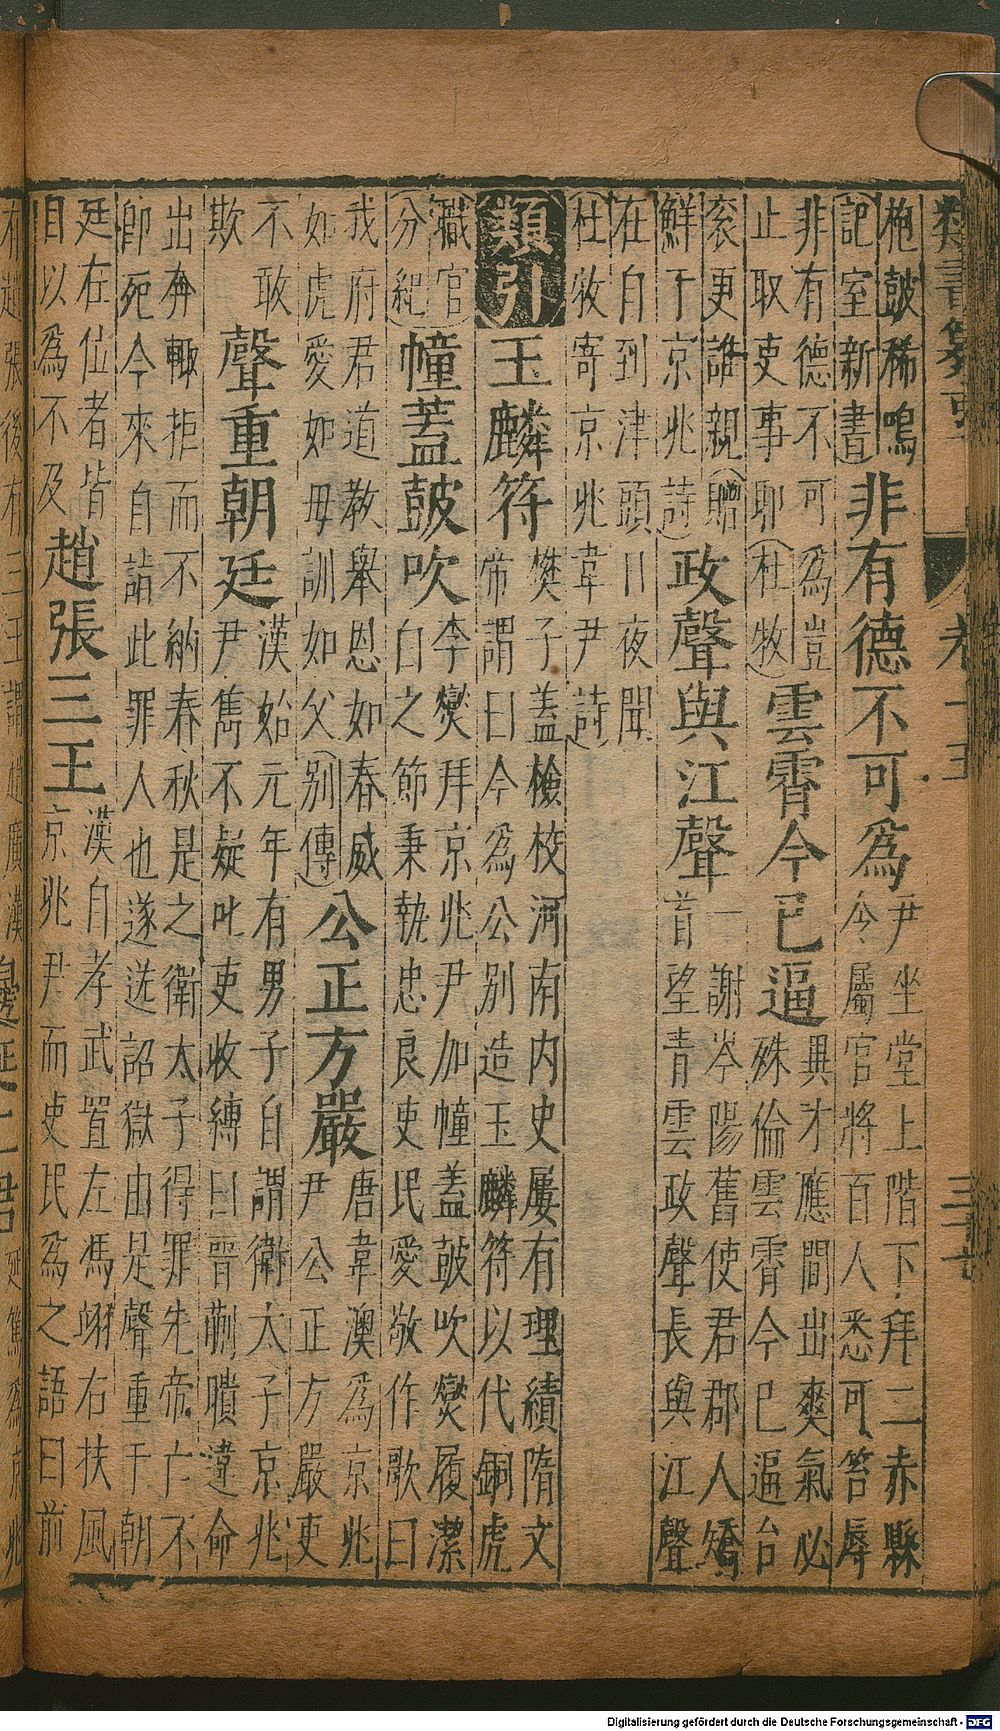 枹鼓稀鳴
(記室新書)
非有德不可爲
尹坐堂上階下拜二赤縣
令屬官將百人悉可笞辱
非有德不可爲豈
止取吏事耶(杜牧)
雲霄今已逼
異才應間出爽氣必
殊倫雲霄今已逼台
衮更誰親(贈
鮮于京兆詩)
政聲與江聲
一謝岑陽舊使君郡人矯
首望青雲政聲長與江聲
在自到津頭日夜聞
(杜牧寄京兆韋尹詩)
類引
玉麟符
樊子蓋檢校河南内史屢有理績隋文
帝謂曰今爲公別造玉麟符以代銅虎
(職官
分紀)
幢蓋鼓吹
李燮拜京兆尹加幢蓋鼓吹燮履潔
白之節秉執忠良吏民愛敬作歌曰
我府君道教舉恩如春威
如虎愛如母訓如父(別傳)
公正方嚴
唐韋澳為京兆
尹公正方嚴吏
不敢
欺
聲重朝廷
漢始元年有男子自謂衛太子京兆
尹雋不疑叱吏收縛曰晉蒯聵違命
出奔輒拒而不納春秋是之衛太子得罪先帝亡不
卽死今來自詣此罪人也遂送詔獄由是聲重于朝
廷在位者皆
自以爲不及
趙張三王
漢自孝武置左馮翊右扶風
京兆尹而吏民爲之語曰前
Digitalisierung gefördert durch die Deutsche Forschungsgemeinschaft - DFG